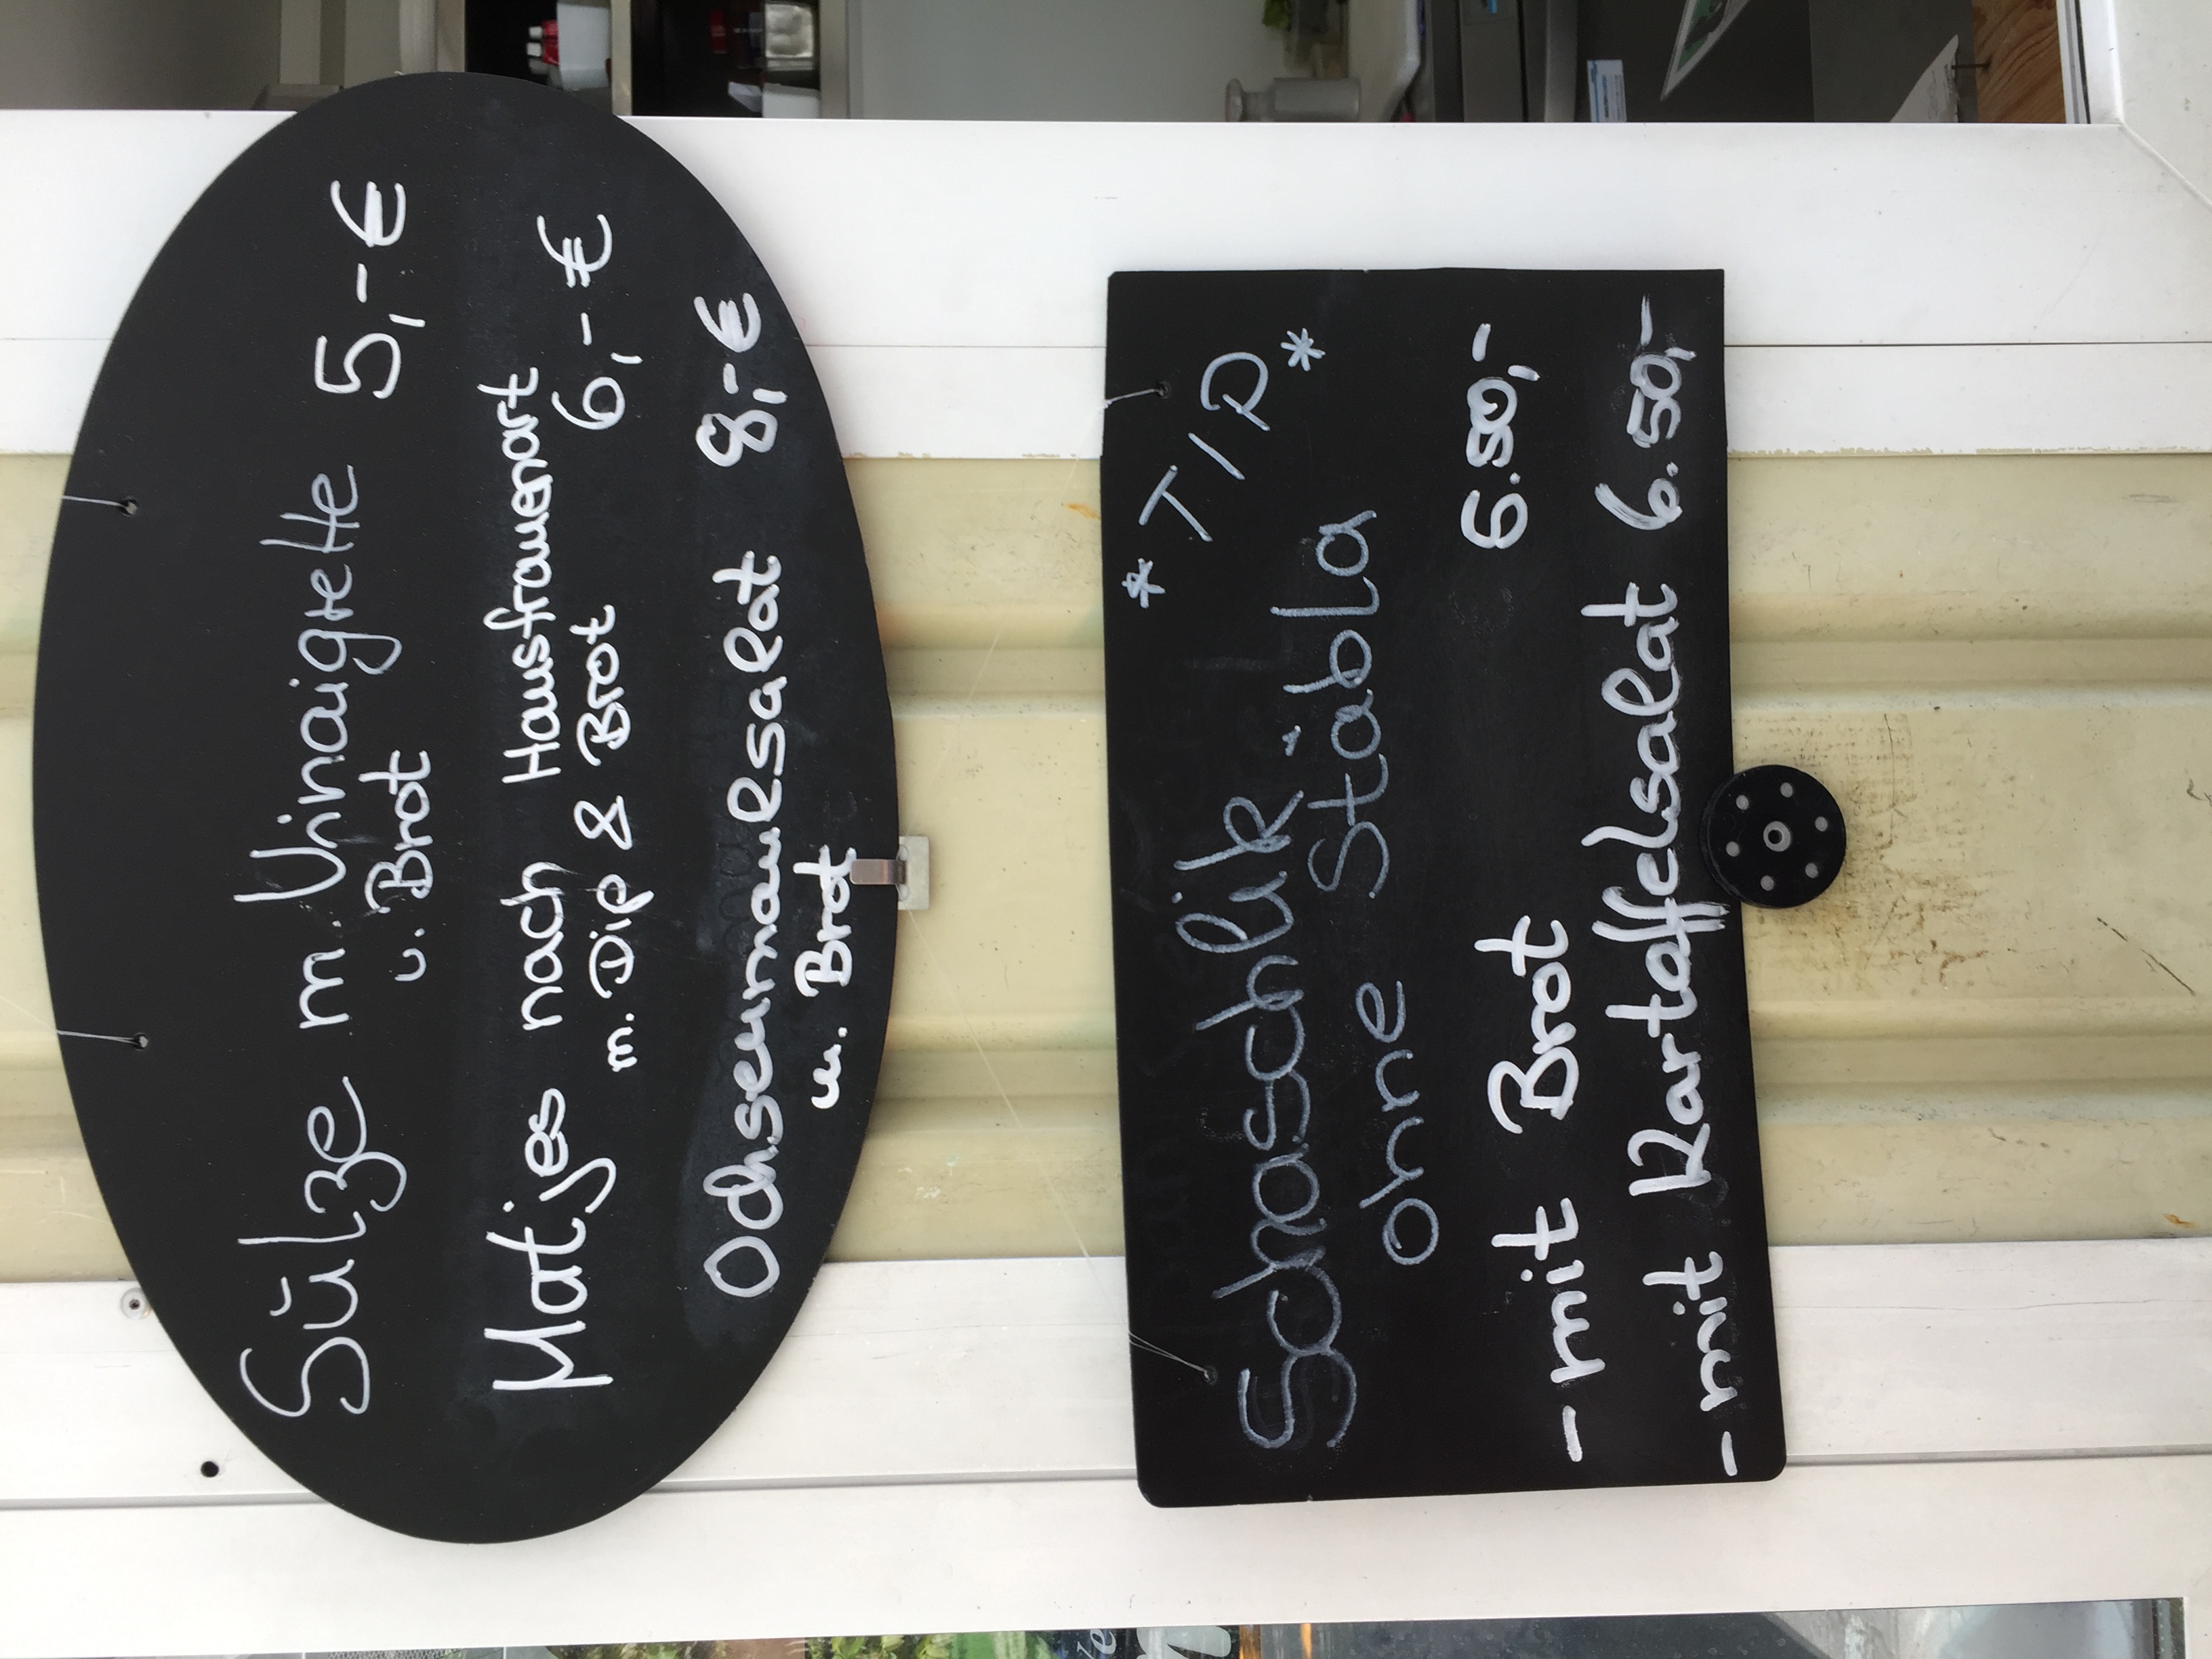 Sülze m. Vinaigrette 5,-€
u. Brot
Matjes nach Hausfrauenart
m. Dip & Brot 6,-€
Ochsenmaulsalat 8,-€
u. Brot
*TIP*
Schaschlik
ohne Stäbla
-mit Brot 6.50,-
-mit Kartoffelsalat 6.50,-